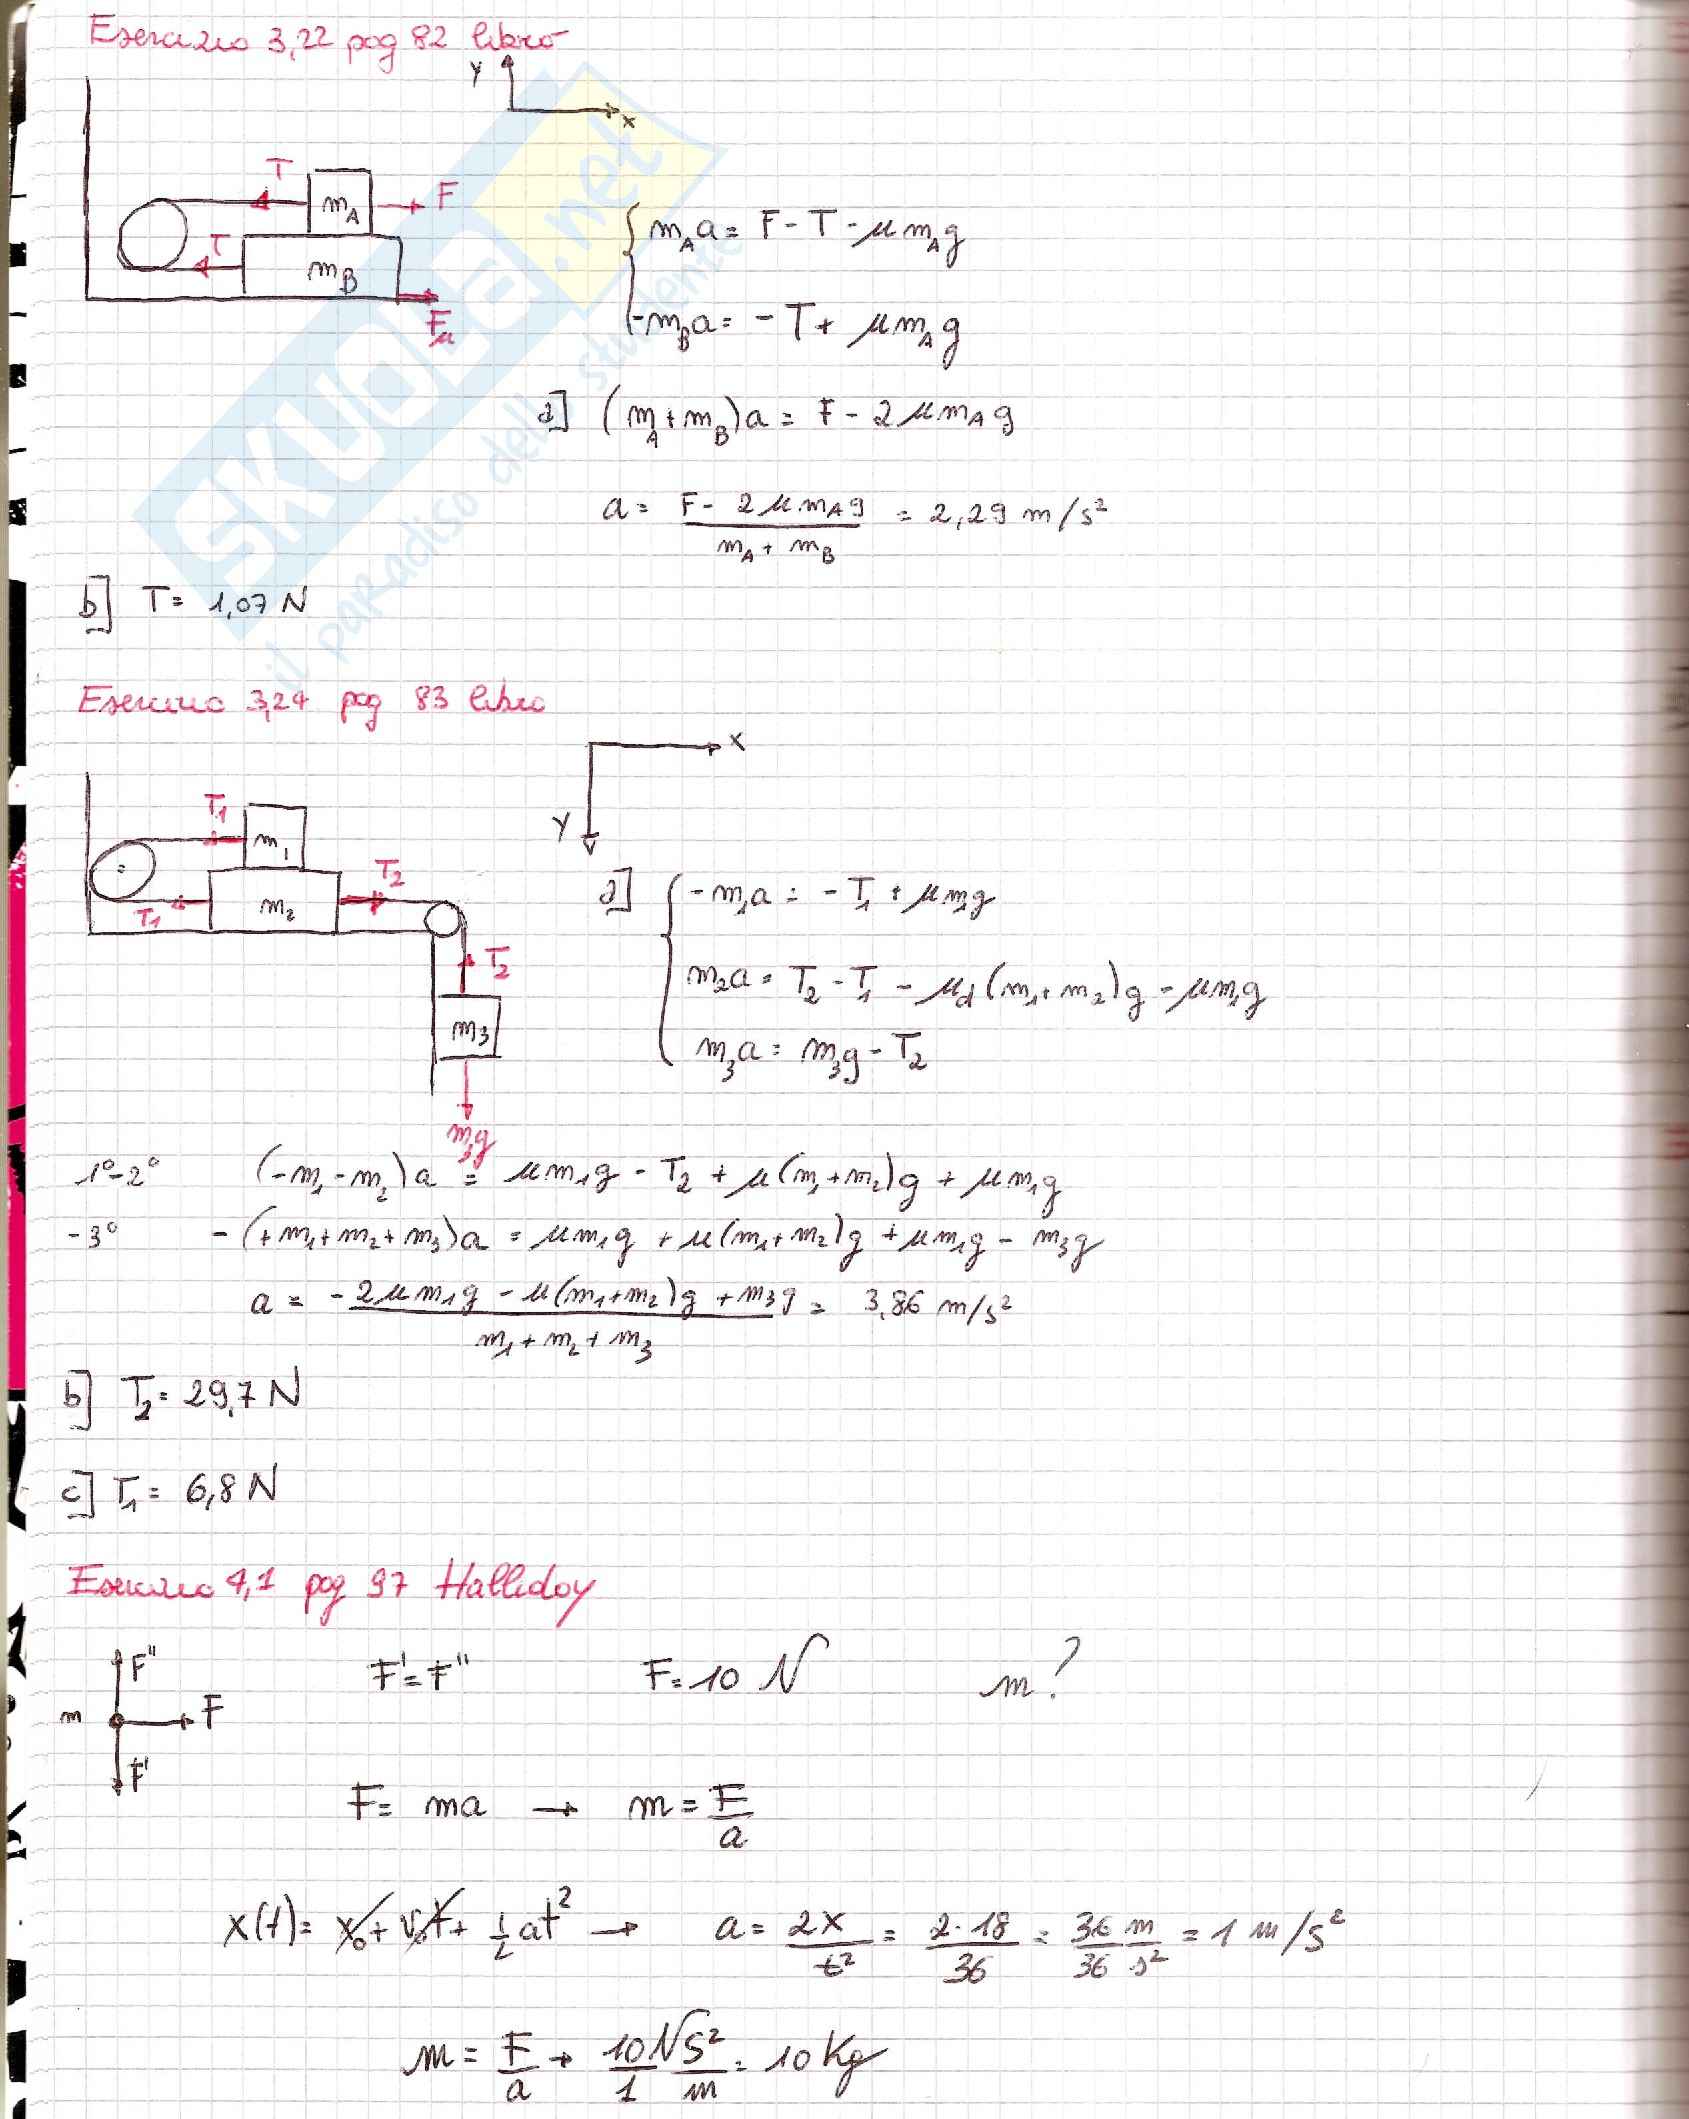 Esercizio 3,22 pag 82 libro
Y
x
T
m_A
F
T
m_B
F_μ
m_A a = F - T - μ m_A g
-m_B a = - T + μ m_A g
a] (m_A + m_B) a = F - 2 μ m_A g
a = (F - 2 μ m_A g) / (m_A + m_B) = 2,29 m/s²
b] T = 1,07 N
Esercizio 3,24 pag 83 libro
x
Y
T_1
m_1
T_2
T_1
m_2
T_2
m_3
m_3 g
a] - m_1 a = - T_1 + μ m_1 g
m_2 a = T_2 - T_1 - μ_d (m_1 + m_2) g - μ m_1 g
m_3 a = m_3 g - T_2
1°-2° (-m_1 - m_2) a = μ m_1 g - T_2 + μ (m_1 + m_2) g + μ m_1 g
-3° - (+ m_1 + m_2 + m_3) a = μ m_1 g + μ (m_1 + m_2) g + μ m_1 g - m_3 g
a = (- 2 μ m_1 g - μ (m_1 + m_2) g + m_3 g) / (m_1 + m_2 + m_3) = 3,86 m/s²
b] T_2 = 29,7 N
c] T_1 = 6,8 N
Esercizio 4,1 pag 97 Halliday
F''
m
F
F'
F' = F''
F = 10 N
m?
F = ma → m = F/a
x(t) = x_0 + v_0 t + 1/2 at² → a = 2x/t² = 2·18/36 = 36/36 m/s² = 1 m/s²
m = F/a → 10/1 N s²/m = 10 Kg
SKUOLA.net
il paradiso dello studente